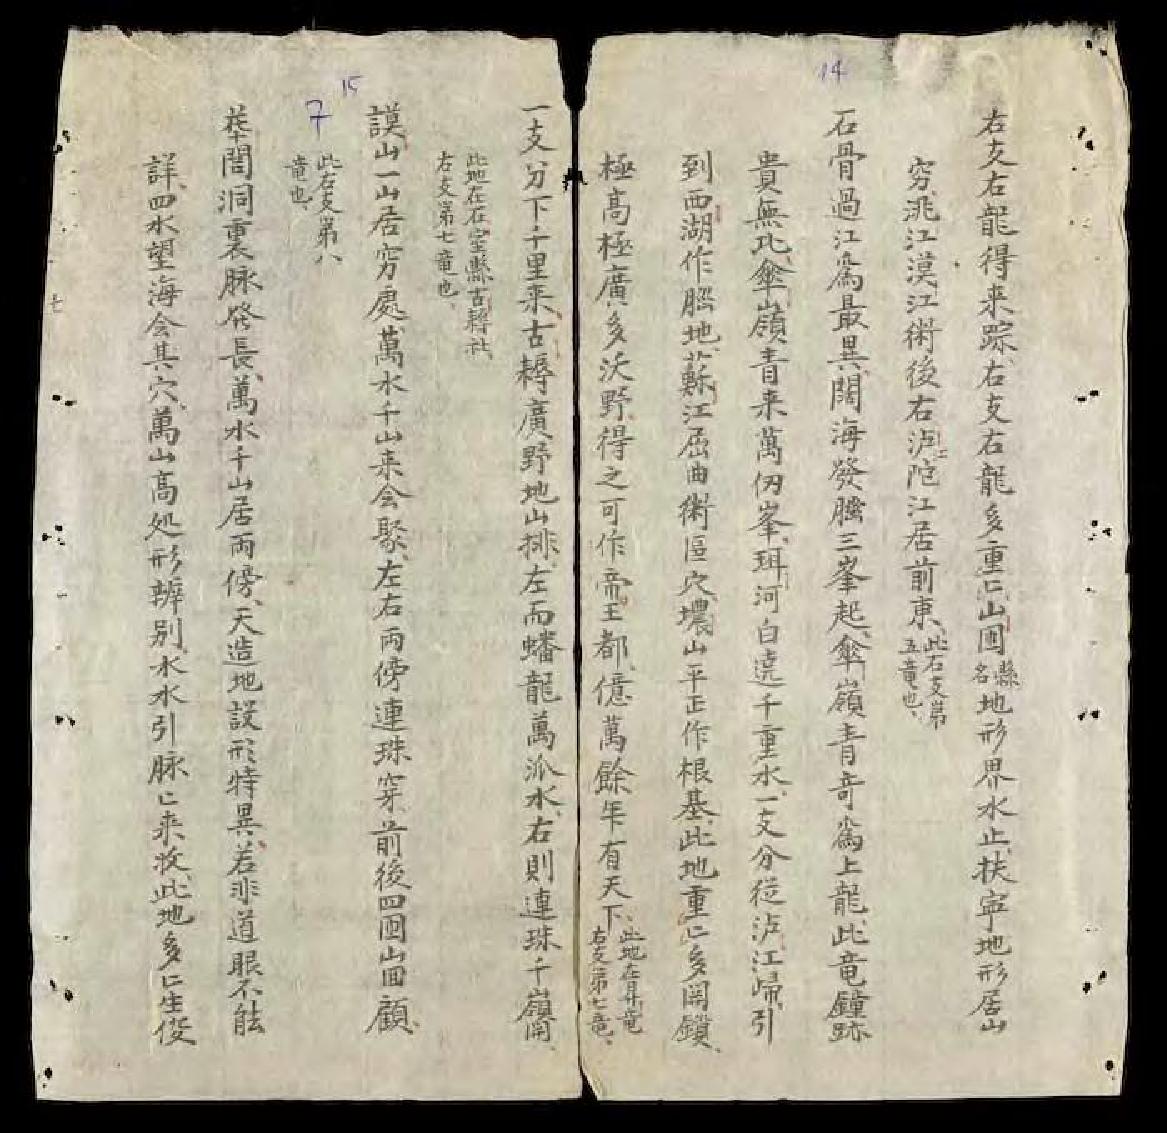 14
右支右龍得来踪右支右龍多重〻山囲縣名地形界水止扶寧地形居山
窮洮江漠江術後右泸陀江居前東此右支第五竜也
石骨過江為最異闊海發腦三峯起傘嶺青奇為上龍此竜鐘跡
貴無比傘嶺青来萬仞峯珥河白遶千重水一支分從泸江歸引
到西湖作腦地蘇江屈曲術區穴壠山平正作根基此地重〻多関鎖
極高極廣多沃野得之可作帝王都億萬餘年有天下此地在昇竜右支第七竜
15
一支分下千里来古耨廣野地山排左而蟠龍萬派水右則連珠千嶺開
此地在石室縣古耨社右支第七竜也
謨山一山居穷處萬水千山来会聚左右兩傍連珠穿前後四囲山回顧
7
此右支第八竜也
洞裏脉発長萬水千山居両傍天造地設形特異若非道眼不能
詳四水望海会其穴萬山高処形辨别水水引脉〻来收此地多〻生俊
七